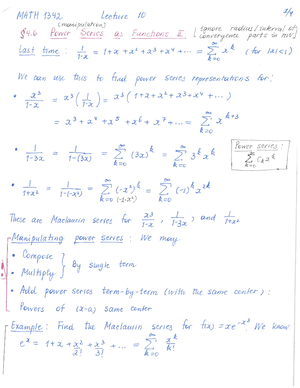 MATH 1342 Lecture 10 2/4
(manipulation)
§4.6 Power Series as Functions II [ignore radius/interval of convergence parts in HW]
Last time: 1/(1-x) = 1 + x + x² + x³ + x⁴ + ... = ∑_{k=0}^{∞} x^k (for |x|<1)
We can use this to find power series representations for:
• x³/(1-x) = x³(1/(1-x)) = x³(1 + x + x² + x³ + x⁴ + ...)
= x³ + x⁴ + x⁵ + x⁶ + x⁷ + ... = ∑_{k=0}^{∞} x^{k+3}
• 1/(1-3x) = 1/(1-(3x)) = ∑_{k=0}^{∞} (3x)^k = ∑_{k=0}^{∞} 3^k x^k
Power series:
∑_{k=0}^{∞} c_k x^k
• 1/(1+x²) = 1/(1-(-x²)) = ∑_{k=0}^{∞} (-x²)^k = ∑_{k=0}^{∞} (-1)^k x^{2k}
(-1·x²)
These are Maclaurin series for x³/(1-x), 1/(1-3x), and 1/(1+x²)
Manipulating power series: We may
• Compose
• Multiply } By single term
• Add power series term-by-term (with the same center):
Powers of (x-a) same center
Example: Find the Maclaurin series for f(x) = xe^{-x³} We know:
e^x = 1 + x + x²/2! + x³/3! + ... = ∑_{k=0}^{∞} x^k/k!